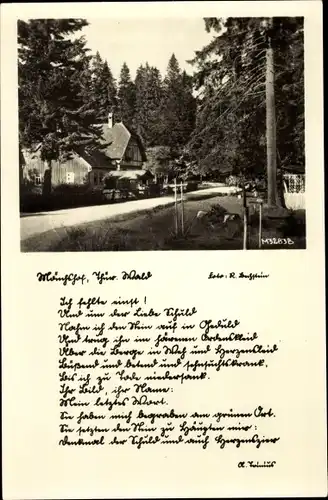 M3283B
Mönchshof, Thür. Wald
Foto: R. Bechstein
Ich fehlte einst!
Und um der Liebe Schuld
Nahm ich den Stein auf in Geduld
Und trug ihn im härenen Ordenskleid
Über die Berge in Weh und Herzensleid
Büßend und betend und sehnsuchtskrank,
Bis ich zu Tode niedersank.
Ihr Bild, ihr Name:
Mein letztes Wort.
Sie haben mich begraben am grünen Ort.
Sie setzten den Stein zu Häupten mir:
Denkmal der Schuld und auch Herzenszier
A. Trinius